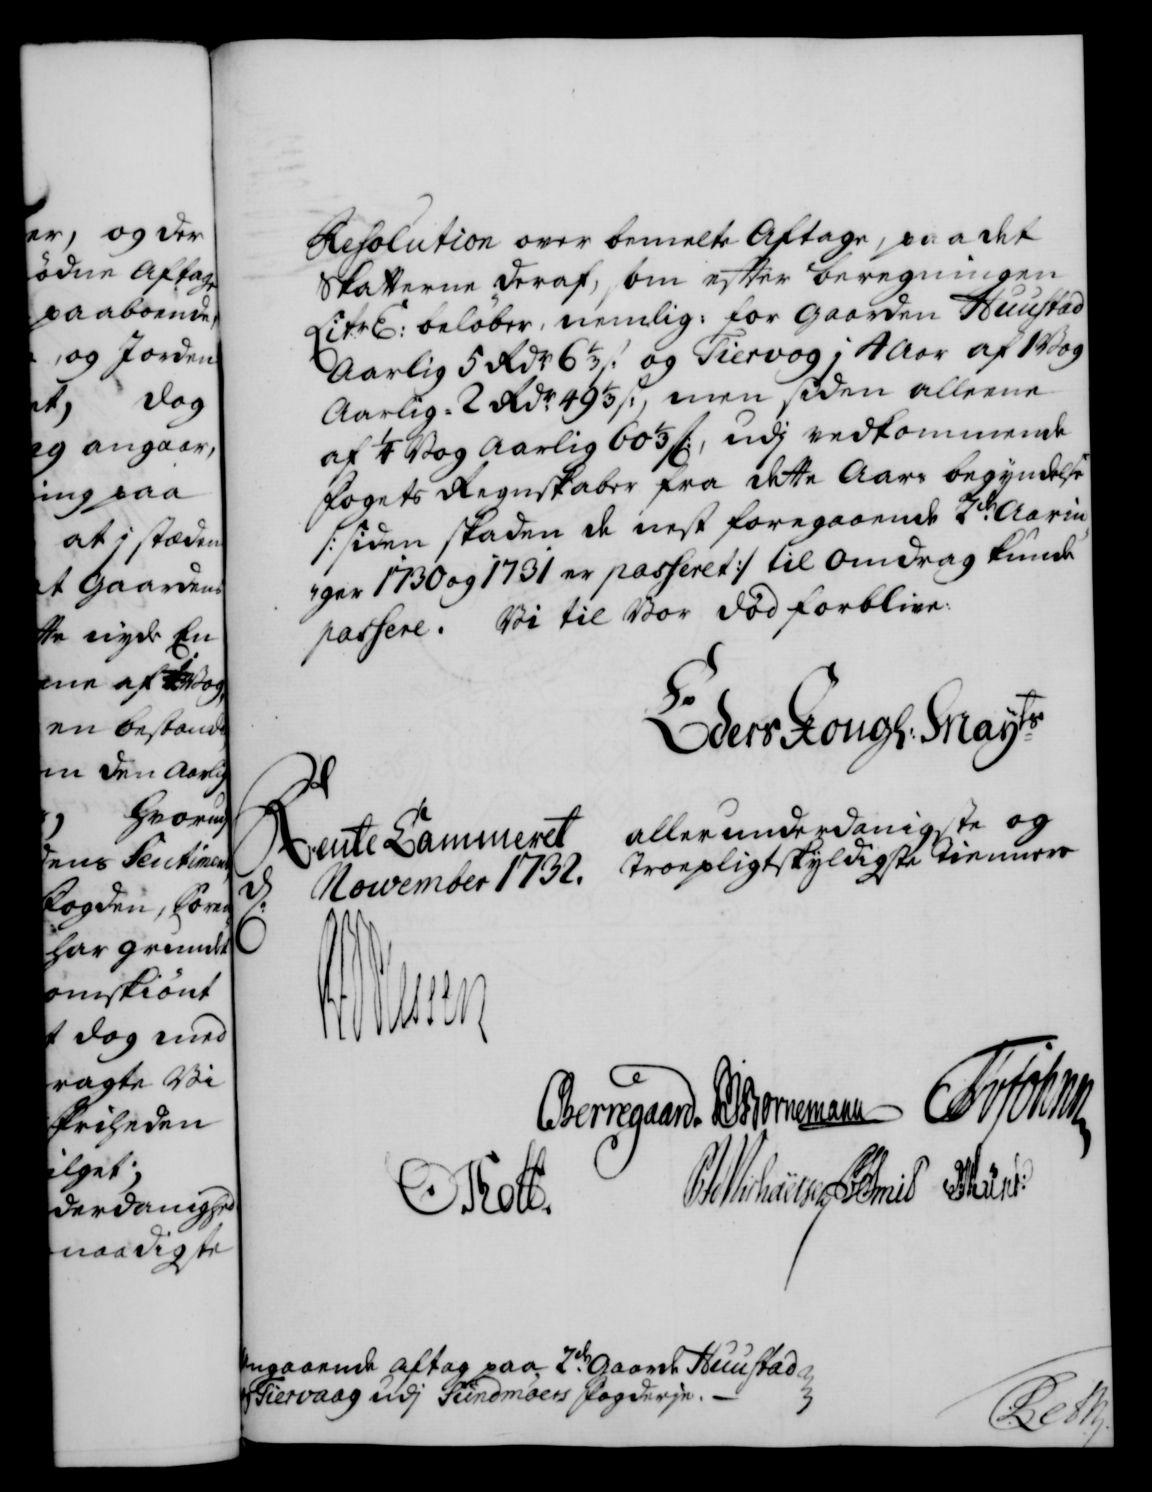 er, og der
ödne Aftage
paaboende,
og Jorden
et, dog
ng angaar,
ing paa
at j stæden
et Gaardens
tte nyde En
ene af 1/4 Vog,
en bestande
m den Aarlig
, hvorudj
dens Sentiment
Fogden, Søren
har grundet
omskiönt
t dog med
ragte Vi
friheden
ilget;
derdanighed
naadigste
Resolution over bemelte Aftage, paa det
Skatterne deraf, som efter beregningen
Litr: C: beløber, nemlig: for Gaarden Huustad
Aarlig 5 Rdr 6 1/3 s: og Tiervog j 4 Aar af 1 Vog
Aarlig = 2 Rdr 49 1/3 s:, men siden alleene
af 1/4 Vog Aarlig 60 1/3 s:, udj vedkommende
Fogets Regnskaber fra dette Aars begyndelse
/: siden skaden de nest foregaaende 2de Aarin-
"ger 1730 og 1731 er passeret :/ til Omdrag kunde
passere. Vi til Vor Död forblive:
Eders Kongl: Mayts
Rente Cammeret allerunderdanigste og
d: November 1732. Troepligtskyldigste Tiennere
Berregaard. Bornemann
Kotte.
Angaaende Aftag paa 2de Gaarde Huustad
og Tiervaag udj Sundmöers Fogderje. –